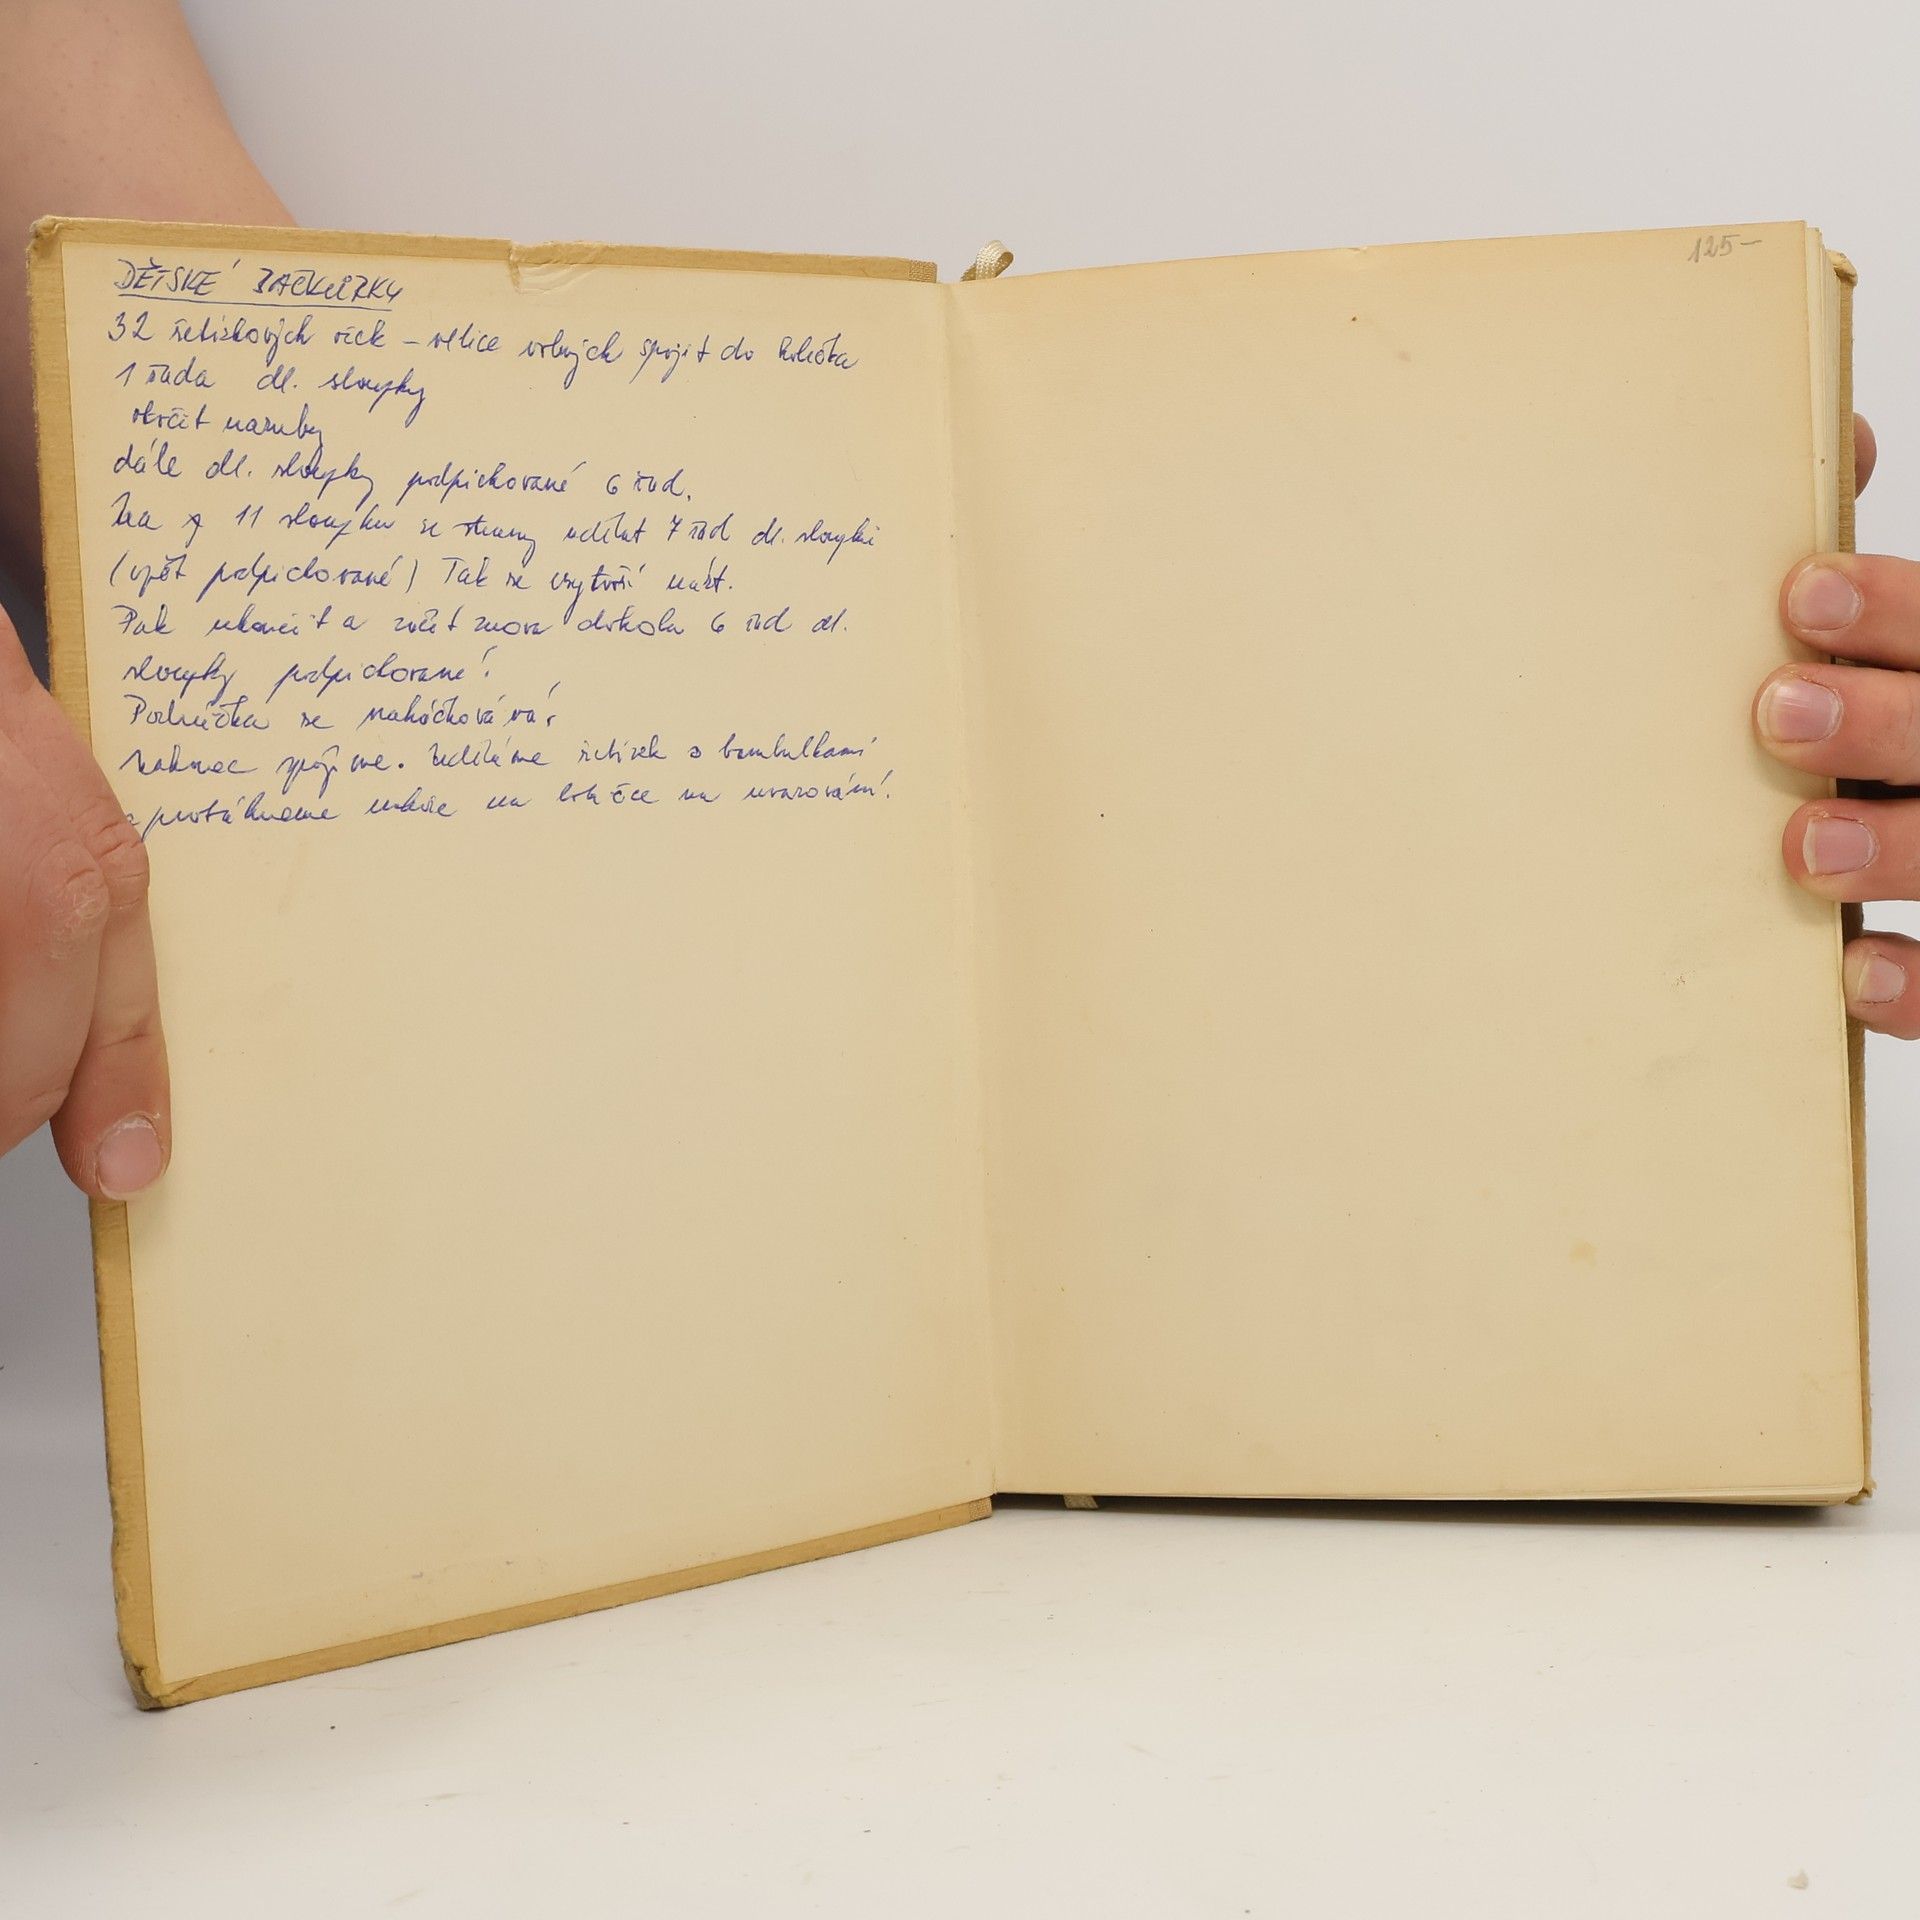 DĚTSKÉ BAČKŮRKY
32 řetízkových ok – velice volných spojit do kolečka
1 řada dl. sloupky
otočit naruby
dále dl. sloupky podpichované 6 řad.
Na 11 sloupku se strany udělat 7 řad dl. sloupků
(opět podpichované) Tak se vytvoří nárt.
Pak ukončit a začít znova dokola 6 řad dl.
sloupky podpichované!
Podrážka se naháčkovává.
Nakonec spojíme. Uděláme řetízek s bambulkami
a protáhneme na botičce na uvazování.
125–